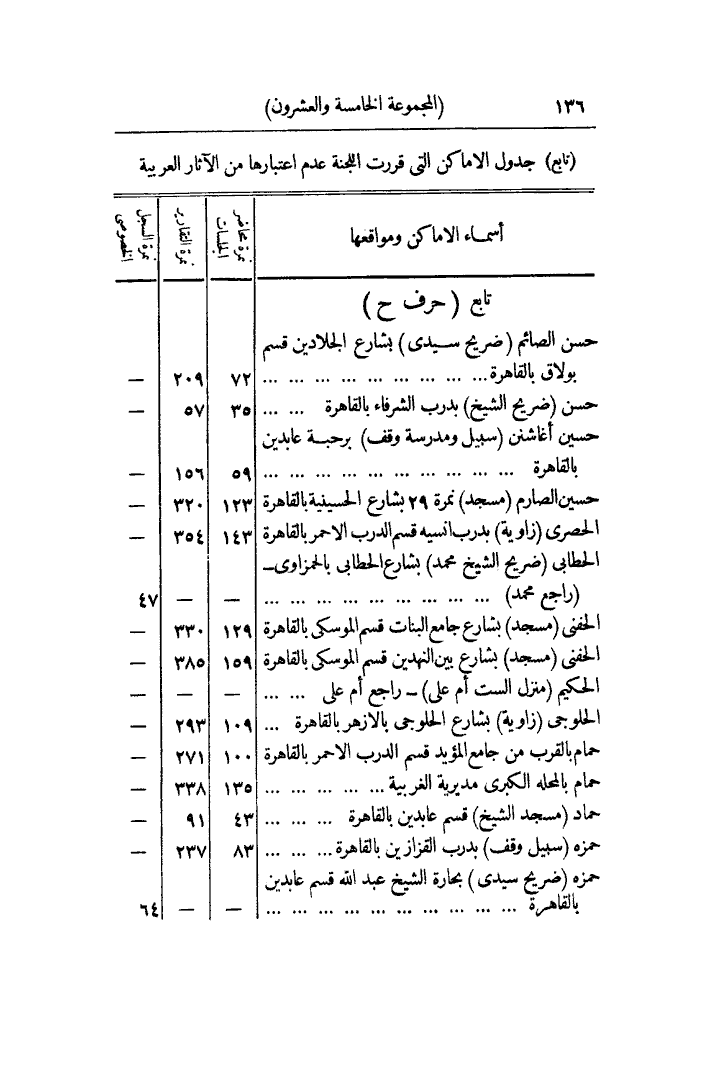 ١٣٦ (المجموعة الخامسة والعشرون)
(تابع) جدول الاماكن التى قررت اللجنة عدم اعتبارها من الآثار العربية
أسماء الاماكن ومواقعها
نمرة محاضر الجلسات
نمرة التقارير
نمرة السجل الخصوصى
تابع (حرف ح)
حسن الصائم (ضريح سيدى) بشارع الجلادين قسم
بولاق بالقاهرة ... ... ... ... ... ... ... ... ... ٧٢ ٢٠٩ —
حسن (ضريح الشيخ) بدرب الشرفاء بالقاهرة ... ... ٣٥ ٥٧ —
حسين أغاشنن (سبيل ومدرسة وقف) برحبة عابدين
بالقاهرة ... ... ... ... ... ... ... ... ... ... ٥٩ ١٥٦ —
حسين الصارم (مسجد) نمرة ٢٩ بشارع الحسينية بالقاهرة ١٢٣ ٣٢٠ —
الحصرى (زاوية) بدرب انسيه قسم الدرب الاحمر بالقاهرة ١٤٣ ٣٥٤ —
الحطابى (ضريح الشيخ محمد) بشارع الحطابى بالحمزاوى —
(راجع محمد) ... ... ... ... ... ... ... ... ... — — ٤٧
الحفنى (مسجد) بشارع جامع البنات قسم الموسكى بالقاهرة ١٢٩ ٣٣٠ —
الحفنى (مسجد) بشارع بين النهدين قسم الموسكى بالقاهرة ١٥٩ ٣٨٥ —
الحكيم (منزل الست أم على) — راجع أم على ... ... — — —
الحلوجى (زاوية) بشارع الحلوجى بالازهر بالقاهرة ... ١٠٩ ٢٩٣ —
حمام بالقرب من جامع المؤيد قسم الدرب الاحمر بالقاهرة ١٠٠ ٢٧١ —
حمام بالمحله الكبرى مديرية الغربية ... ... ... ... ... ١٣٥ ٣٣٨ —
حماد (مسجد الشيخ) قسم عابدين بالقاهرة ... ... ... ٤٣ ٩١ —
حمزه (سبيل وقف) بدرب القزازين بالقاهرة ... ... ... ٨٣ ٢٣٧ —
حمزه (ضريح سيدى) بحارة الشيخ عبد الله قسم عابدين
بالقاهرة ... ... ... ... ... ... ... ... ... ... — — ٦٤